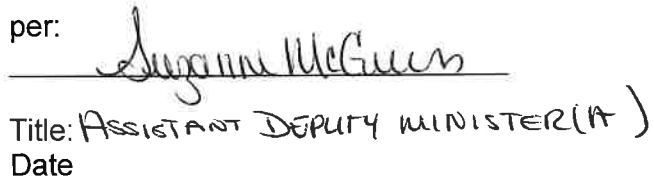 per:
Suzanne McGuinn
Title: ASSISTANT DEPUTY MINISTER(A)
Date